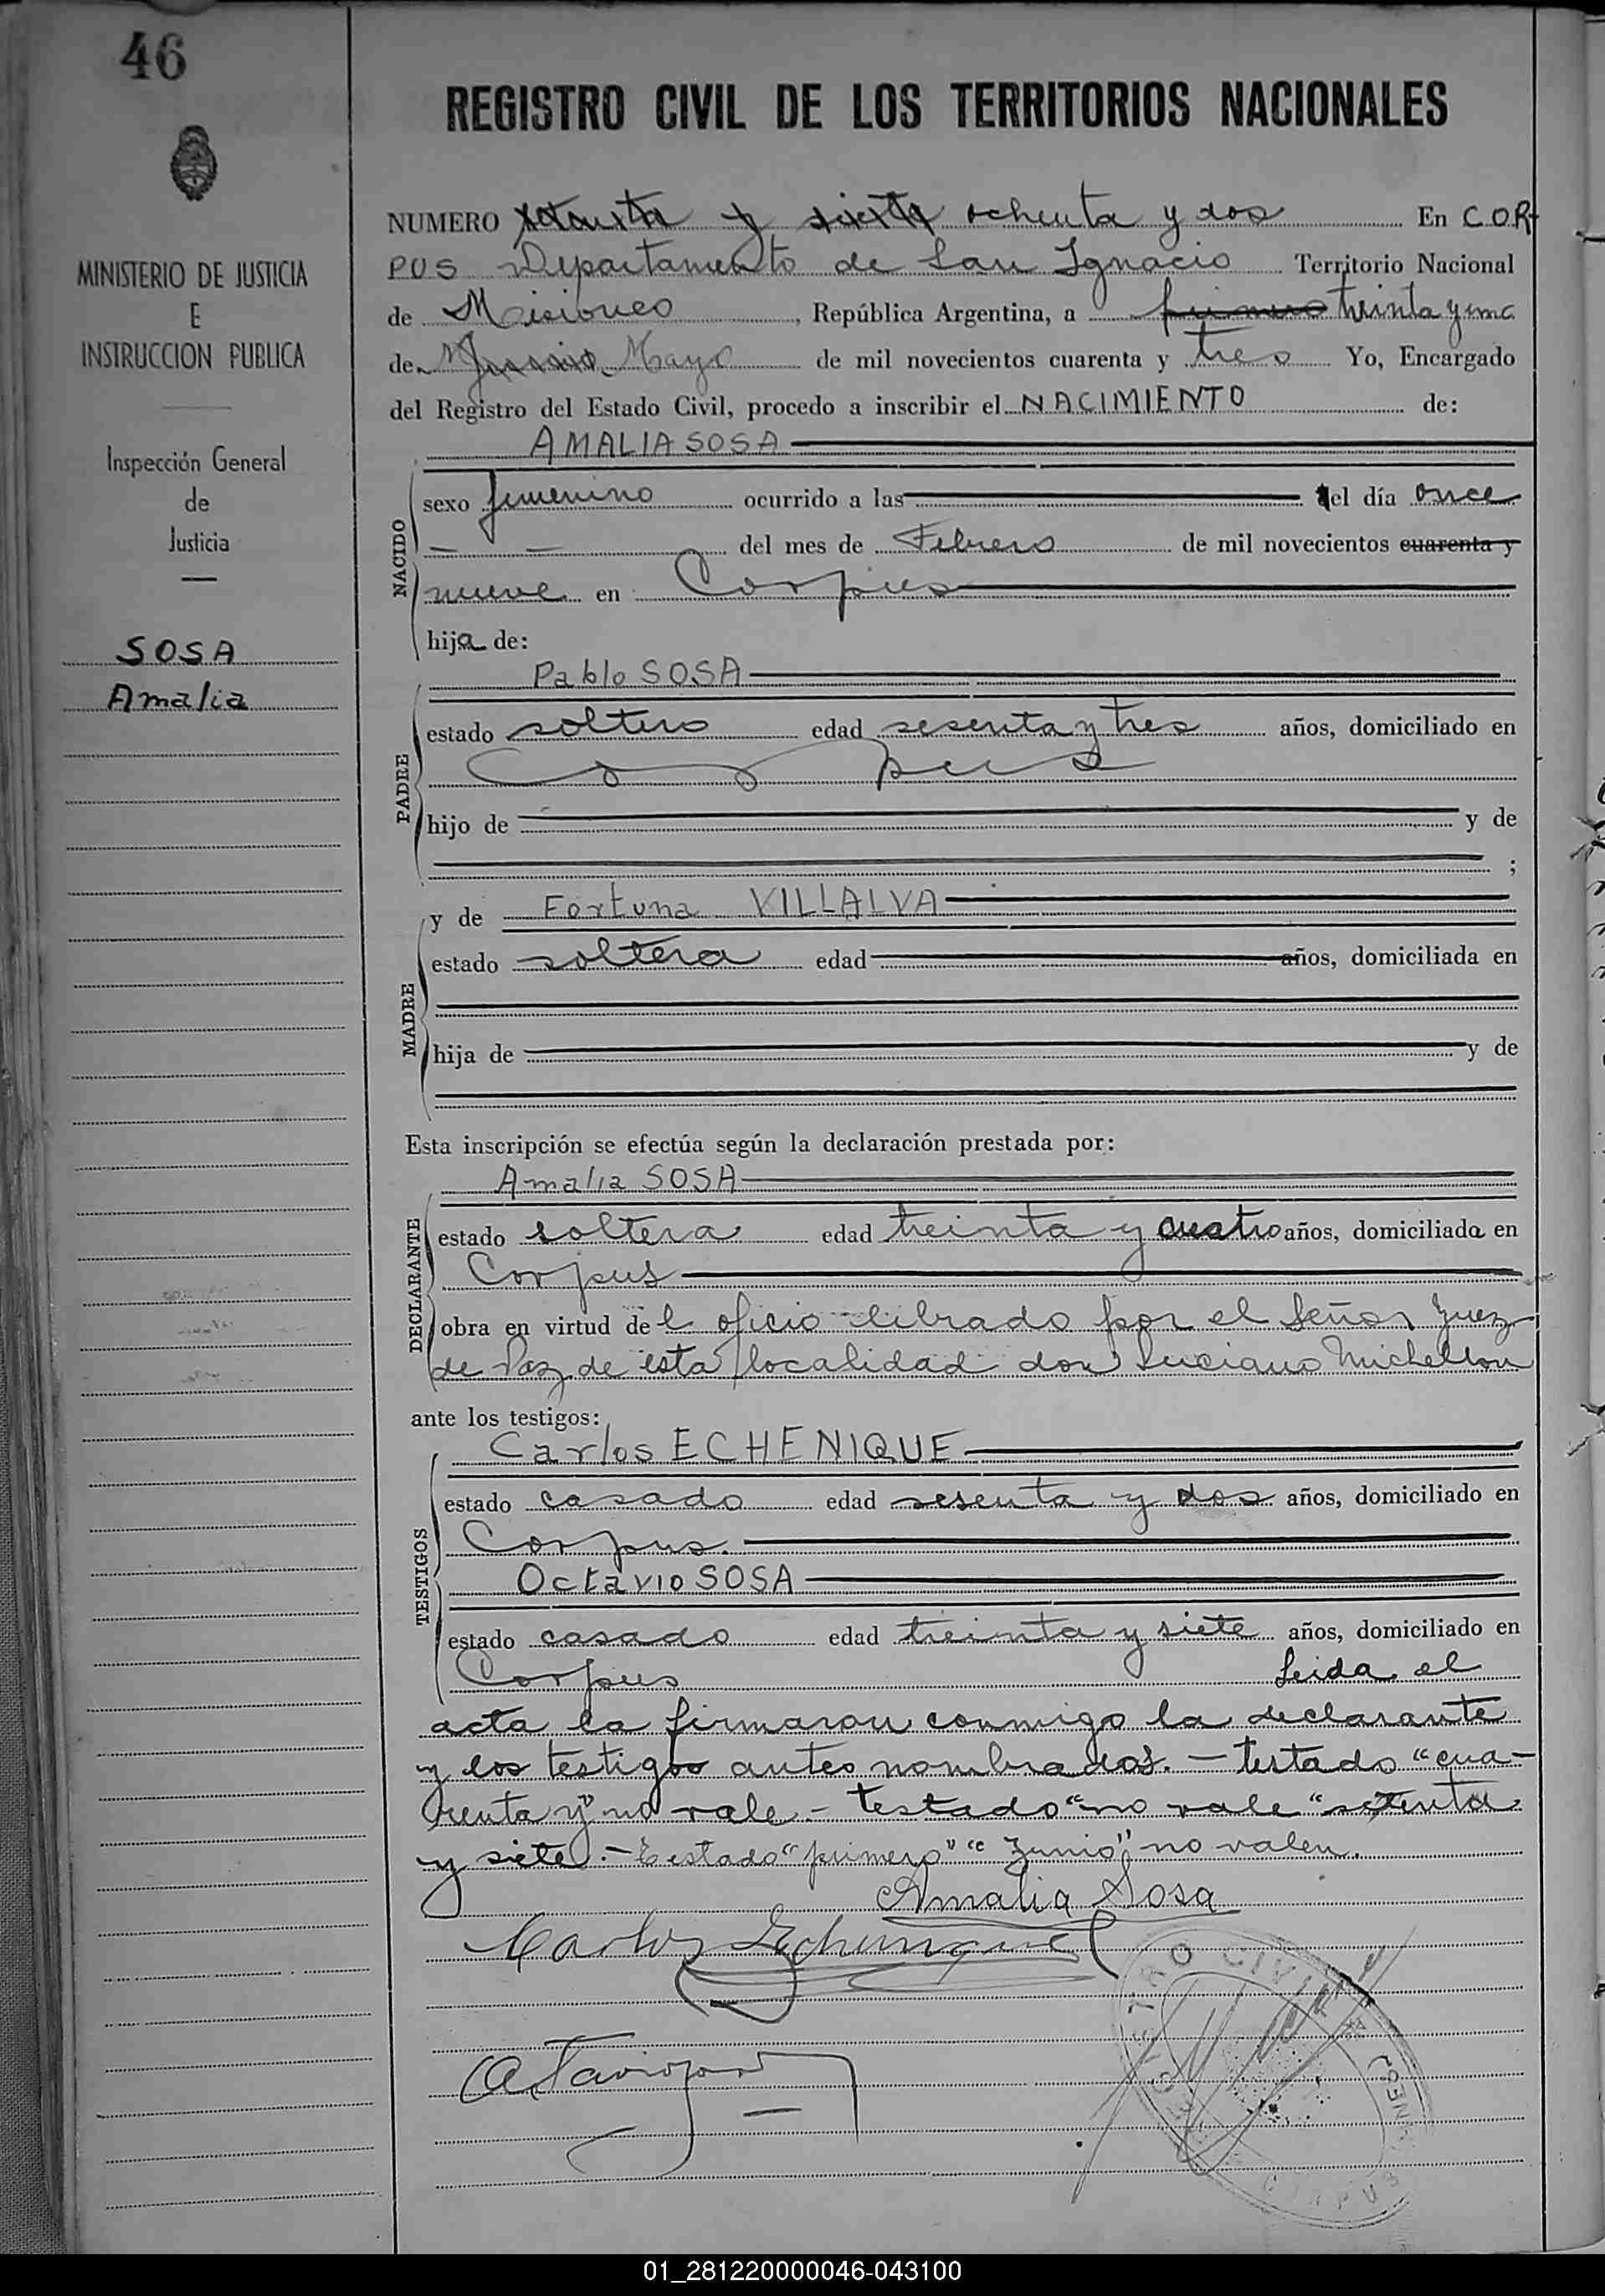 46
REGISTRO CIVIL DE LOS TERRITORIOS NACIONALES
MINISTERIO DE JUSTICIA
E
INSTRUCCION PUBLICA
Inspección General
de
Justicia
SOSA
Amalia
NUMERO setenta y siete ochenta y dos En COR-
PUS Departamento de San Ignacio Territorio Nacional
de Misiones, República Argentina, a primero treinta y uno
de Junio Mayo de mil novecientos cuarenta y tres Yo, Encargado
del Registro del Estado Civil, procedo a inscribir el NACIMIENTO de:
AMALIA SOSA
NACIDO
sexo femenino ocurrido a las del día once
del mes de Febrero de mil novecientos cuarenta y
nueve en Corpus
hija de:
Pablo SOSA
PADRE
estado soltero edad sesenta y tres años, domiciliado en
Corpus
hijo de y de
;
y de Fortuna VILLALVA
MADRE
estado soltera edad años, domiciliada en
hija de y de
Esta inscripción se efectúa según la declaración prestada por:
Amalia SOSA
DECLARANTE
estado soltera edad treinta y cuatro años, domiciliada en
Corpus
obra en virtud del oficio librado por el Señor Juez
de Paz de esta localidad don Luciano Michellon
ante los testigos:
Carlos ECHENIQUE
TESTIGOS
estado casado edad sesenta y dos años, domiciliado en
Corpus.
Octavio SOSA
estado casado edad treinta y siete años, domiciliado en
Corpus Leida el
acta la firmaron conmigo la declarante
y los testigos antes nombrados. - testado "cua-
renta y" no vale - testado "no vale "setenta
y siete. - Testado "primero" "Junio" no valen.
Amalia Sosa
Carlos Echenique
CIVIL
CORPUS
01_281220000046-043100